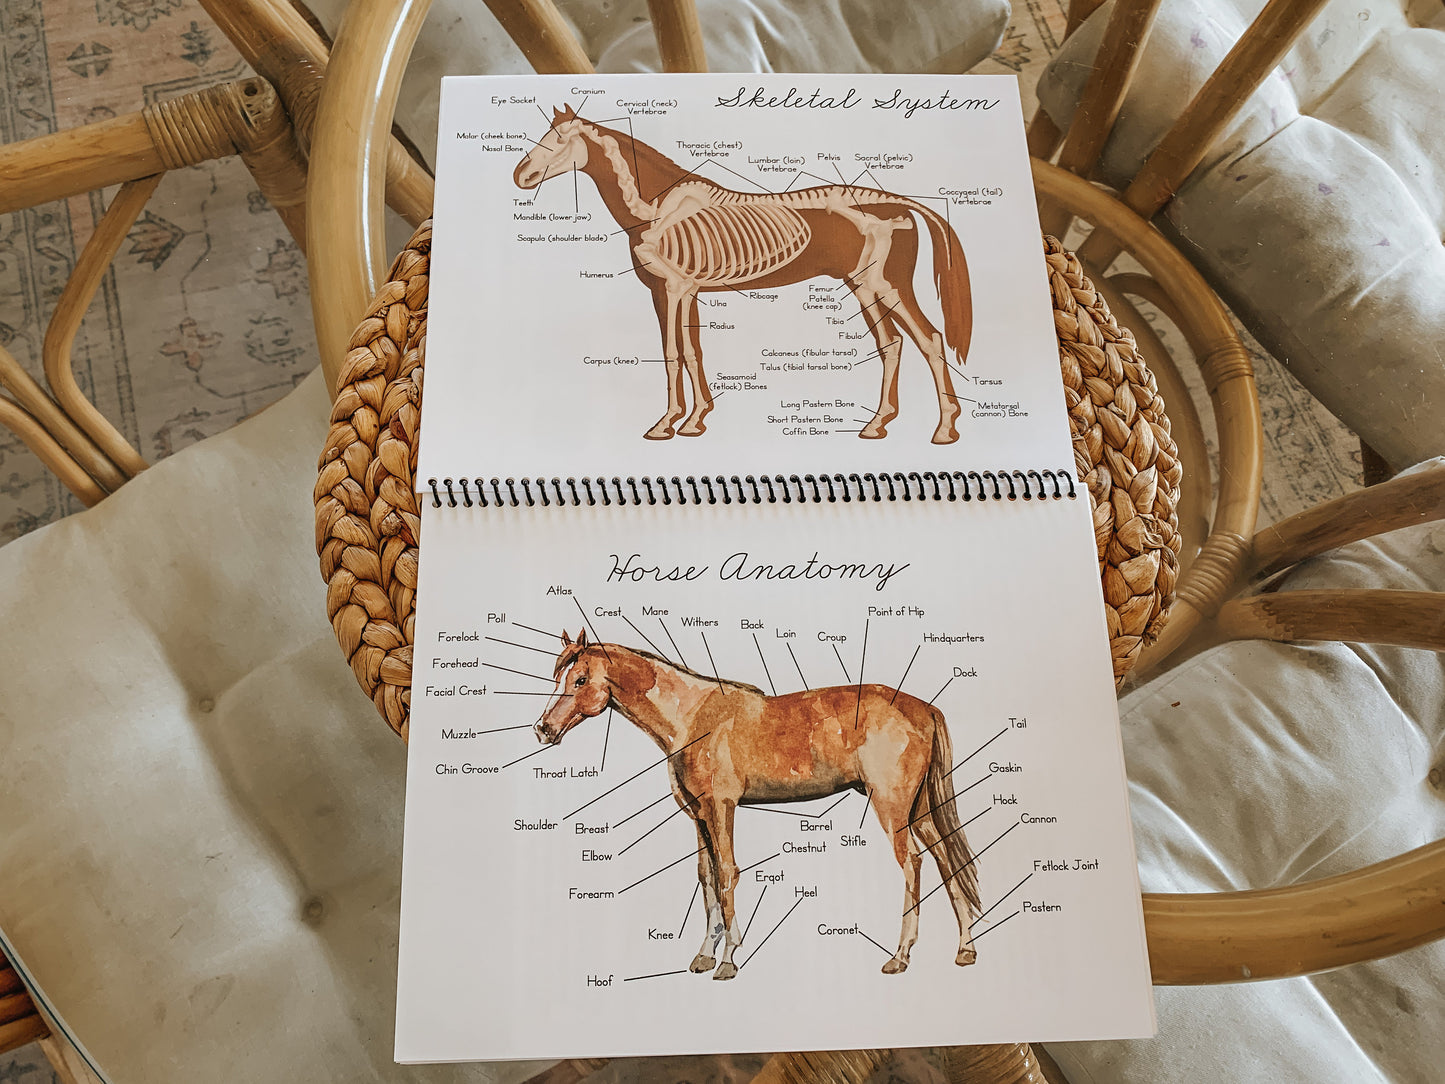 Skeletal System
Cranium
Eye Socket
Cervical (neck)
Vertebrae
Molar (cheek bone)
Nasal Bone
Thoracic (chest)
Vertebrae
Lumbar (loin)
Vertebrae
Pelvis
Sacral (pelvic)
Vertebrae
Coccygeal (tail)
Vertebrae
Teeth
Mandible (lower jaw)
Scapula (shoulder blade)
Humerus
Ulna
Ribcage
Femur
Patella
(knee cap)
Radius
Tibia
Fibula
Carpus (knee)
Calcaneus (fibular tarsal)
Talus (tibial tarsal bone)
Seasamoid
(fetlock) Bones
Tarsus
Long Pastern Bone
Metatarsal
(cannon) Bone
Short Pastern Bone
Coffin Bone
Horse Anatomy
Atlas
Crest
Mane
Withers
Back
Loin
Croup
Point of Hip
Hindquarters
Dock
Poll
Forelock
Forehead
Facial Crest
Muzzle
Chin Groove
Throat Latch
Tail
Gaskin
Hock
Cannon
Shoulder
Breast
Barrel
Stifle
Elbow
Chestnut
Forearm
Ergot
Heel
Fetlock Joint
Pastern
Knee
Coronet
Hoof